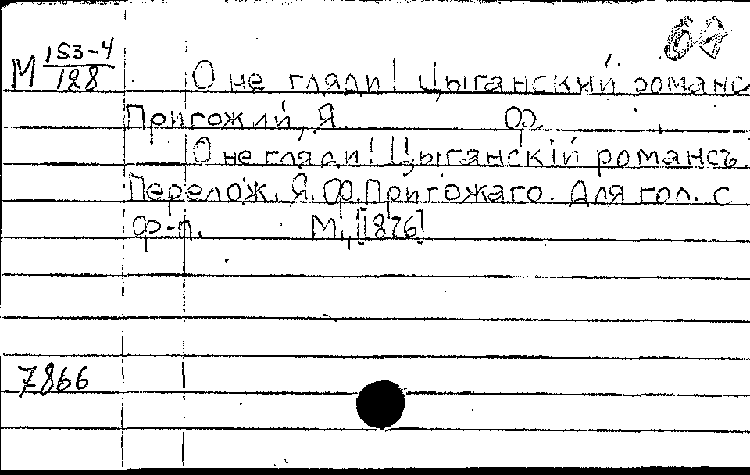 М 153-4/188 О не гляди! Цыганский романс
Пригожий, Я. Ф.
О не гляди! Цыганскій романсъ.
Перелож. Я. Ф. Пригожаго. Для гол. с
ф-п. М., [1876]
7866